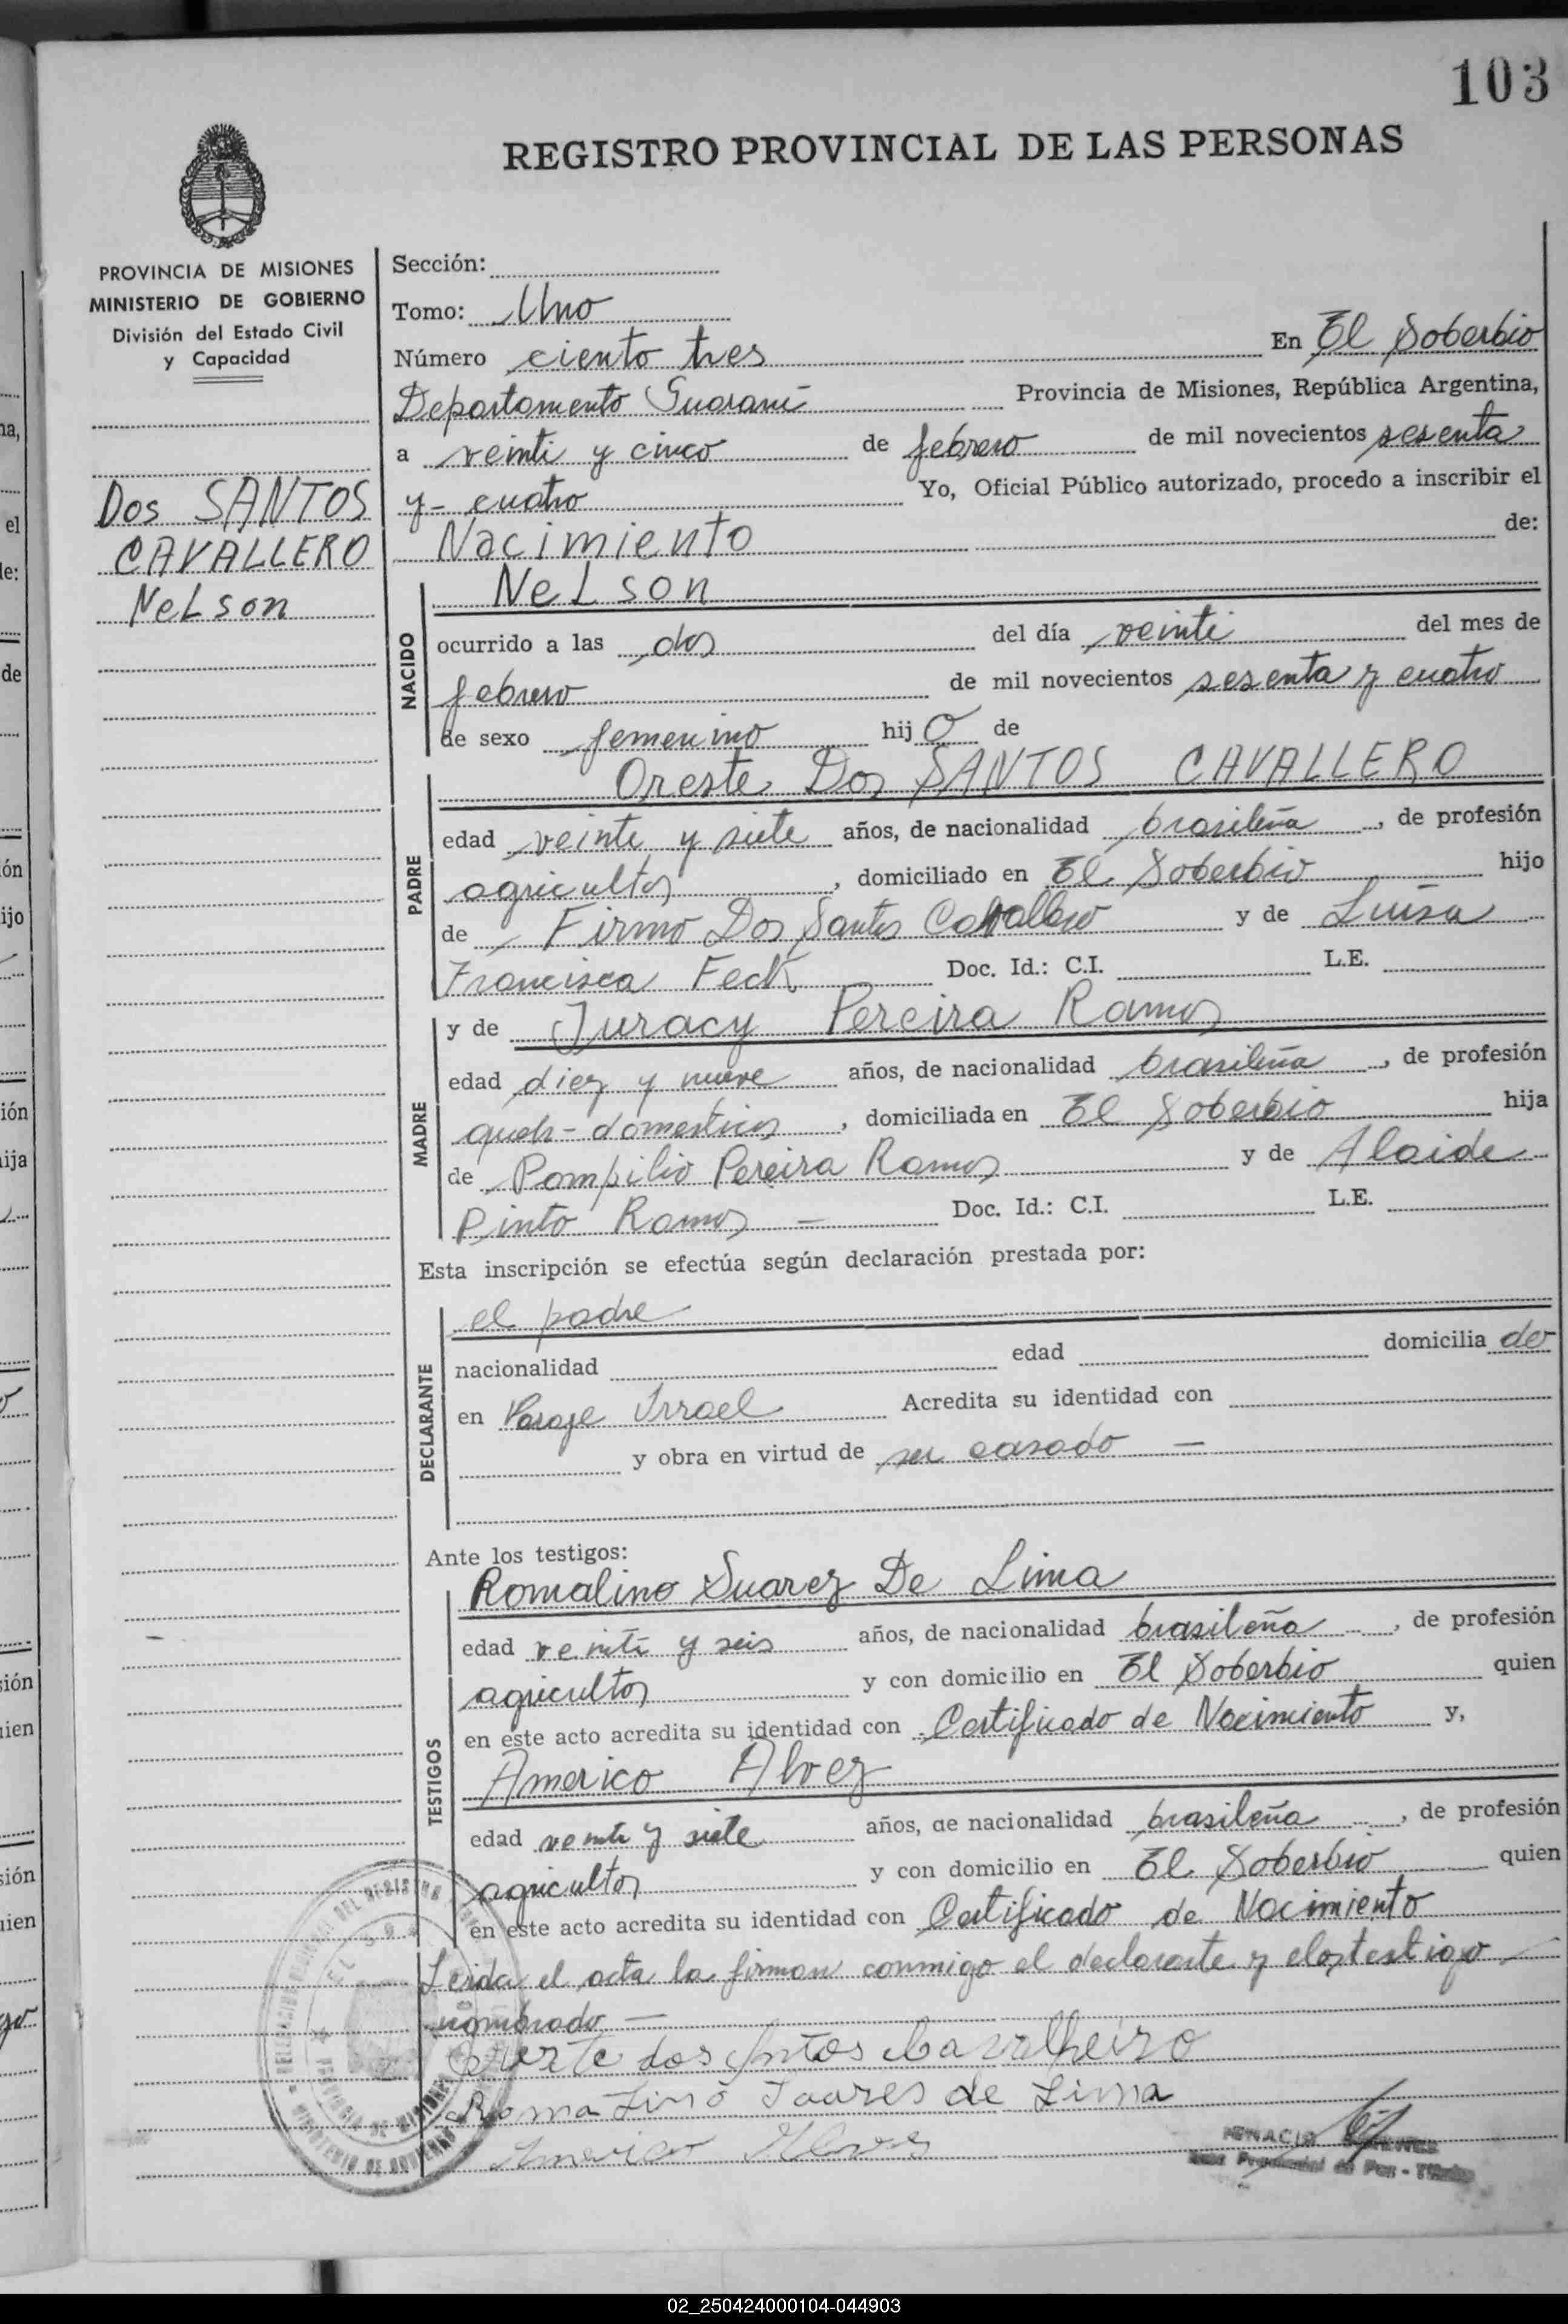 103
REGISTRO PROVINCIAL DE LAS PERSONAS
PROVINCIA DE MISIONES
MINISTERIO DE GOBIERNO
División del Estado Civil
y Capacidad
Dos SANTOS
CAVALLERO
NeLson
Sección:
Tomo: Uno
Número ciento tres En El Soberbio
Departamento Guaraní Provincia de Misiones, República Argentina,
a veinti y cinco de febrero de mil novecientos sesenta
y - cuatro Yo, Oficial Público autorizado, procedo a inscribir el
Nacimiento de:
NACIDO
NeLson
ocurrido a las dos del día veinti del mes de
febrero de mil novecientos sesenta y cuatro
de sexo femenino hijo de
PADRE
Oreste Dos SANTOS CAVALLERO
edad veinte y siete años, de nacionalidad brasileña, de profesión
agricultor, domiciliado en El Soberbio hijo
de Firmo Dos Santos Cavallero y de Luisa
Francisca Feck Doc. Id.: C.I. L.E.
MADRE
y de Juracy Pereira Ramos
edad diez y nueve años, de nacionalidad brasileña, de profesión
queh-domesticos, domiciliada en El Soberbio hija
de Pompilio Pereira Ramos y de Alaide
Pinto Ramos — Doc. Id.: C.I. L.E.
Esta inscripción se efectúa según declaración prestada por:
DECLARANTE
el padre
nacionalidad edad domicilia do
en Paraje Israel Acredita su identidad con
y obra en virtud de ser casado —
Ante los testigos:
TESTIGOS
Romalino Suarez De Lima
edad veinti y seis años, de nacionalidad brasileña, de profesión
agricultor y con domicilio en El Soberbio quien
en este acto acredita su identidad con Certificado de Nacimiento y,
Americo Alvez
edad veinti y siete años, de nacionalidad brasileña, de profesión
agricultor y con domicilio en El Soberbio quien
en este acto acredita su identidad con Certificado de Nacimiento
Leida el acta la firman conmigo el declarante y el os testigo
nombrado —
Oreste dos Santos Cavalheiro
Romalino Soares de Lima
Americo Alves
IGNACIO
Juez Provincial de Paz - Titular
PROVINCIA DE MISIONES
MINISTERIO DE GOBIERNO
02_250424000104-044903